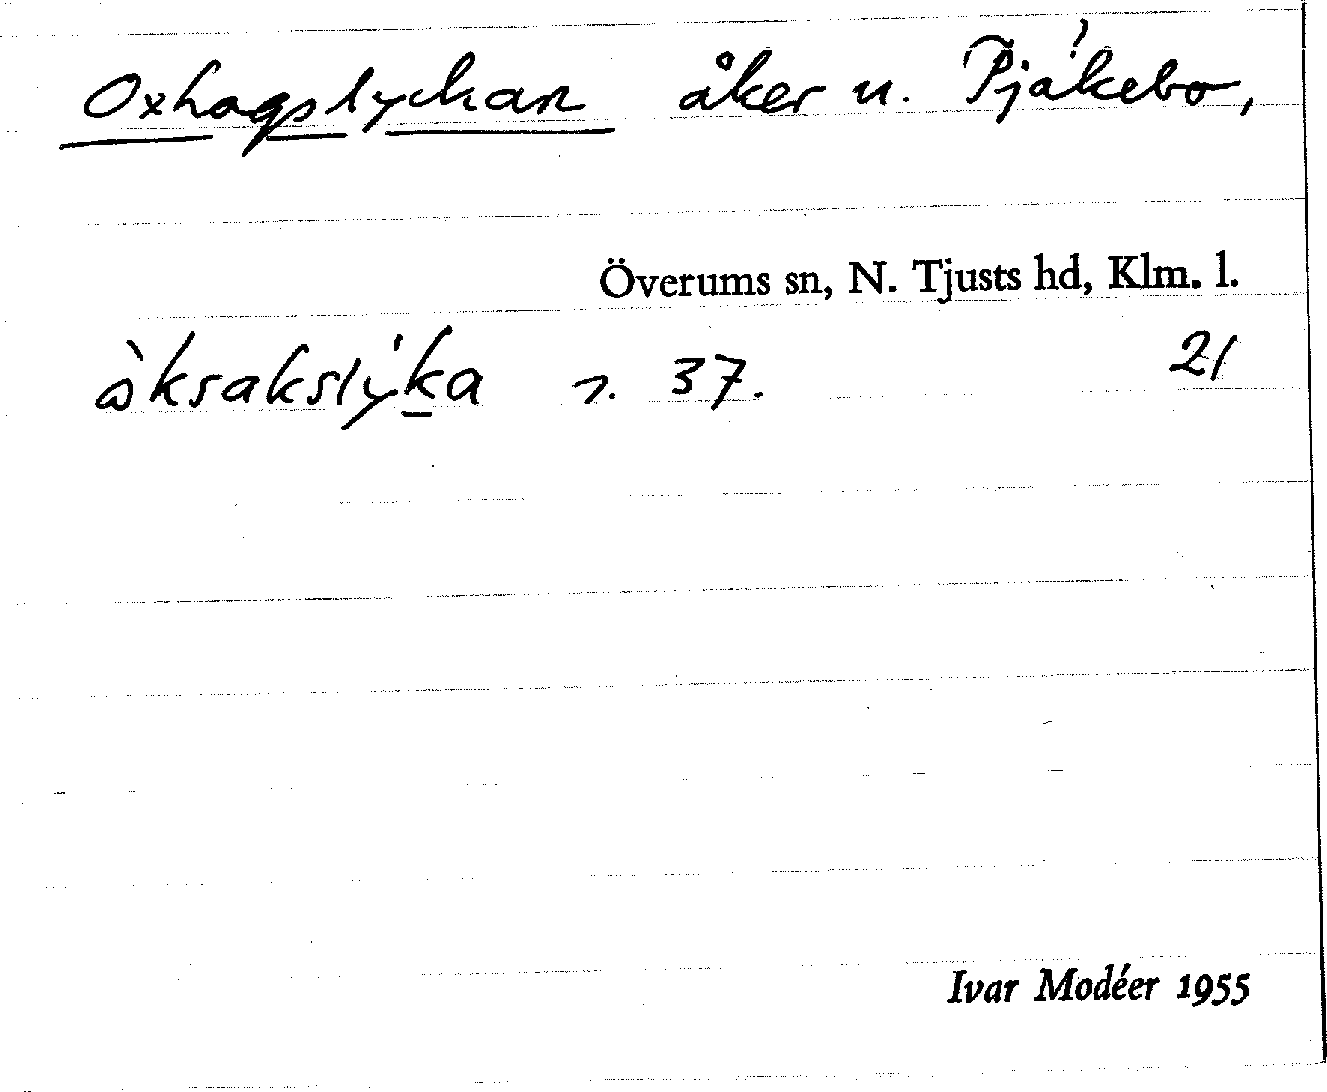 Oxhagslyckan åker u. Pjåkebo,
Överums sn, N. Tjusts hd, Klm. l.
òksakslýka n. 37. 21
Ivar Modéer 1955